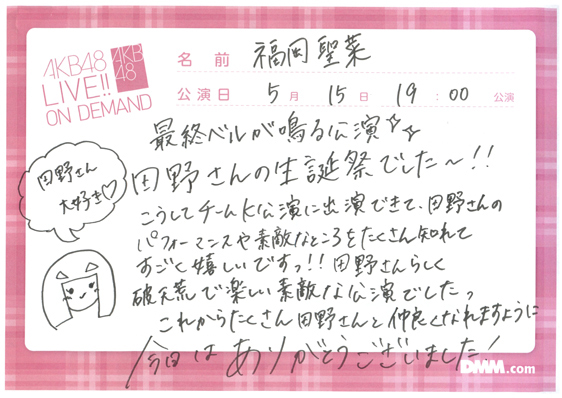 AKB48
LIVE!!
ON DEMAND
AKB
48
名前 福岡聖菜
公演日 5月 15日 19:00 公演
最終ベルが鳴る公演
田野さんの生誕祭でした〜!!
田野さん
大好き♡
こうしてチームK公演に出演できて、田野さんの
パフォーマンスや素敵なところをたくさん知れて
すごく嬉しいですっ!!田野さんらしく
破天荒で楽しい素敵な公演でしたっ
これからたくさん田野さんと仲良くなれますように
今日はありがとうございました!
DMM.com